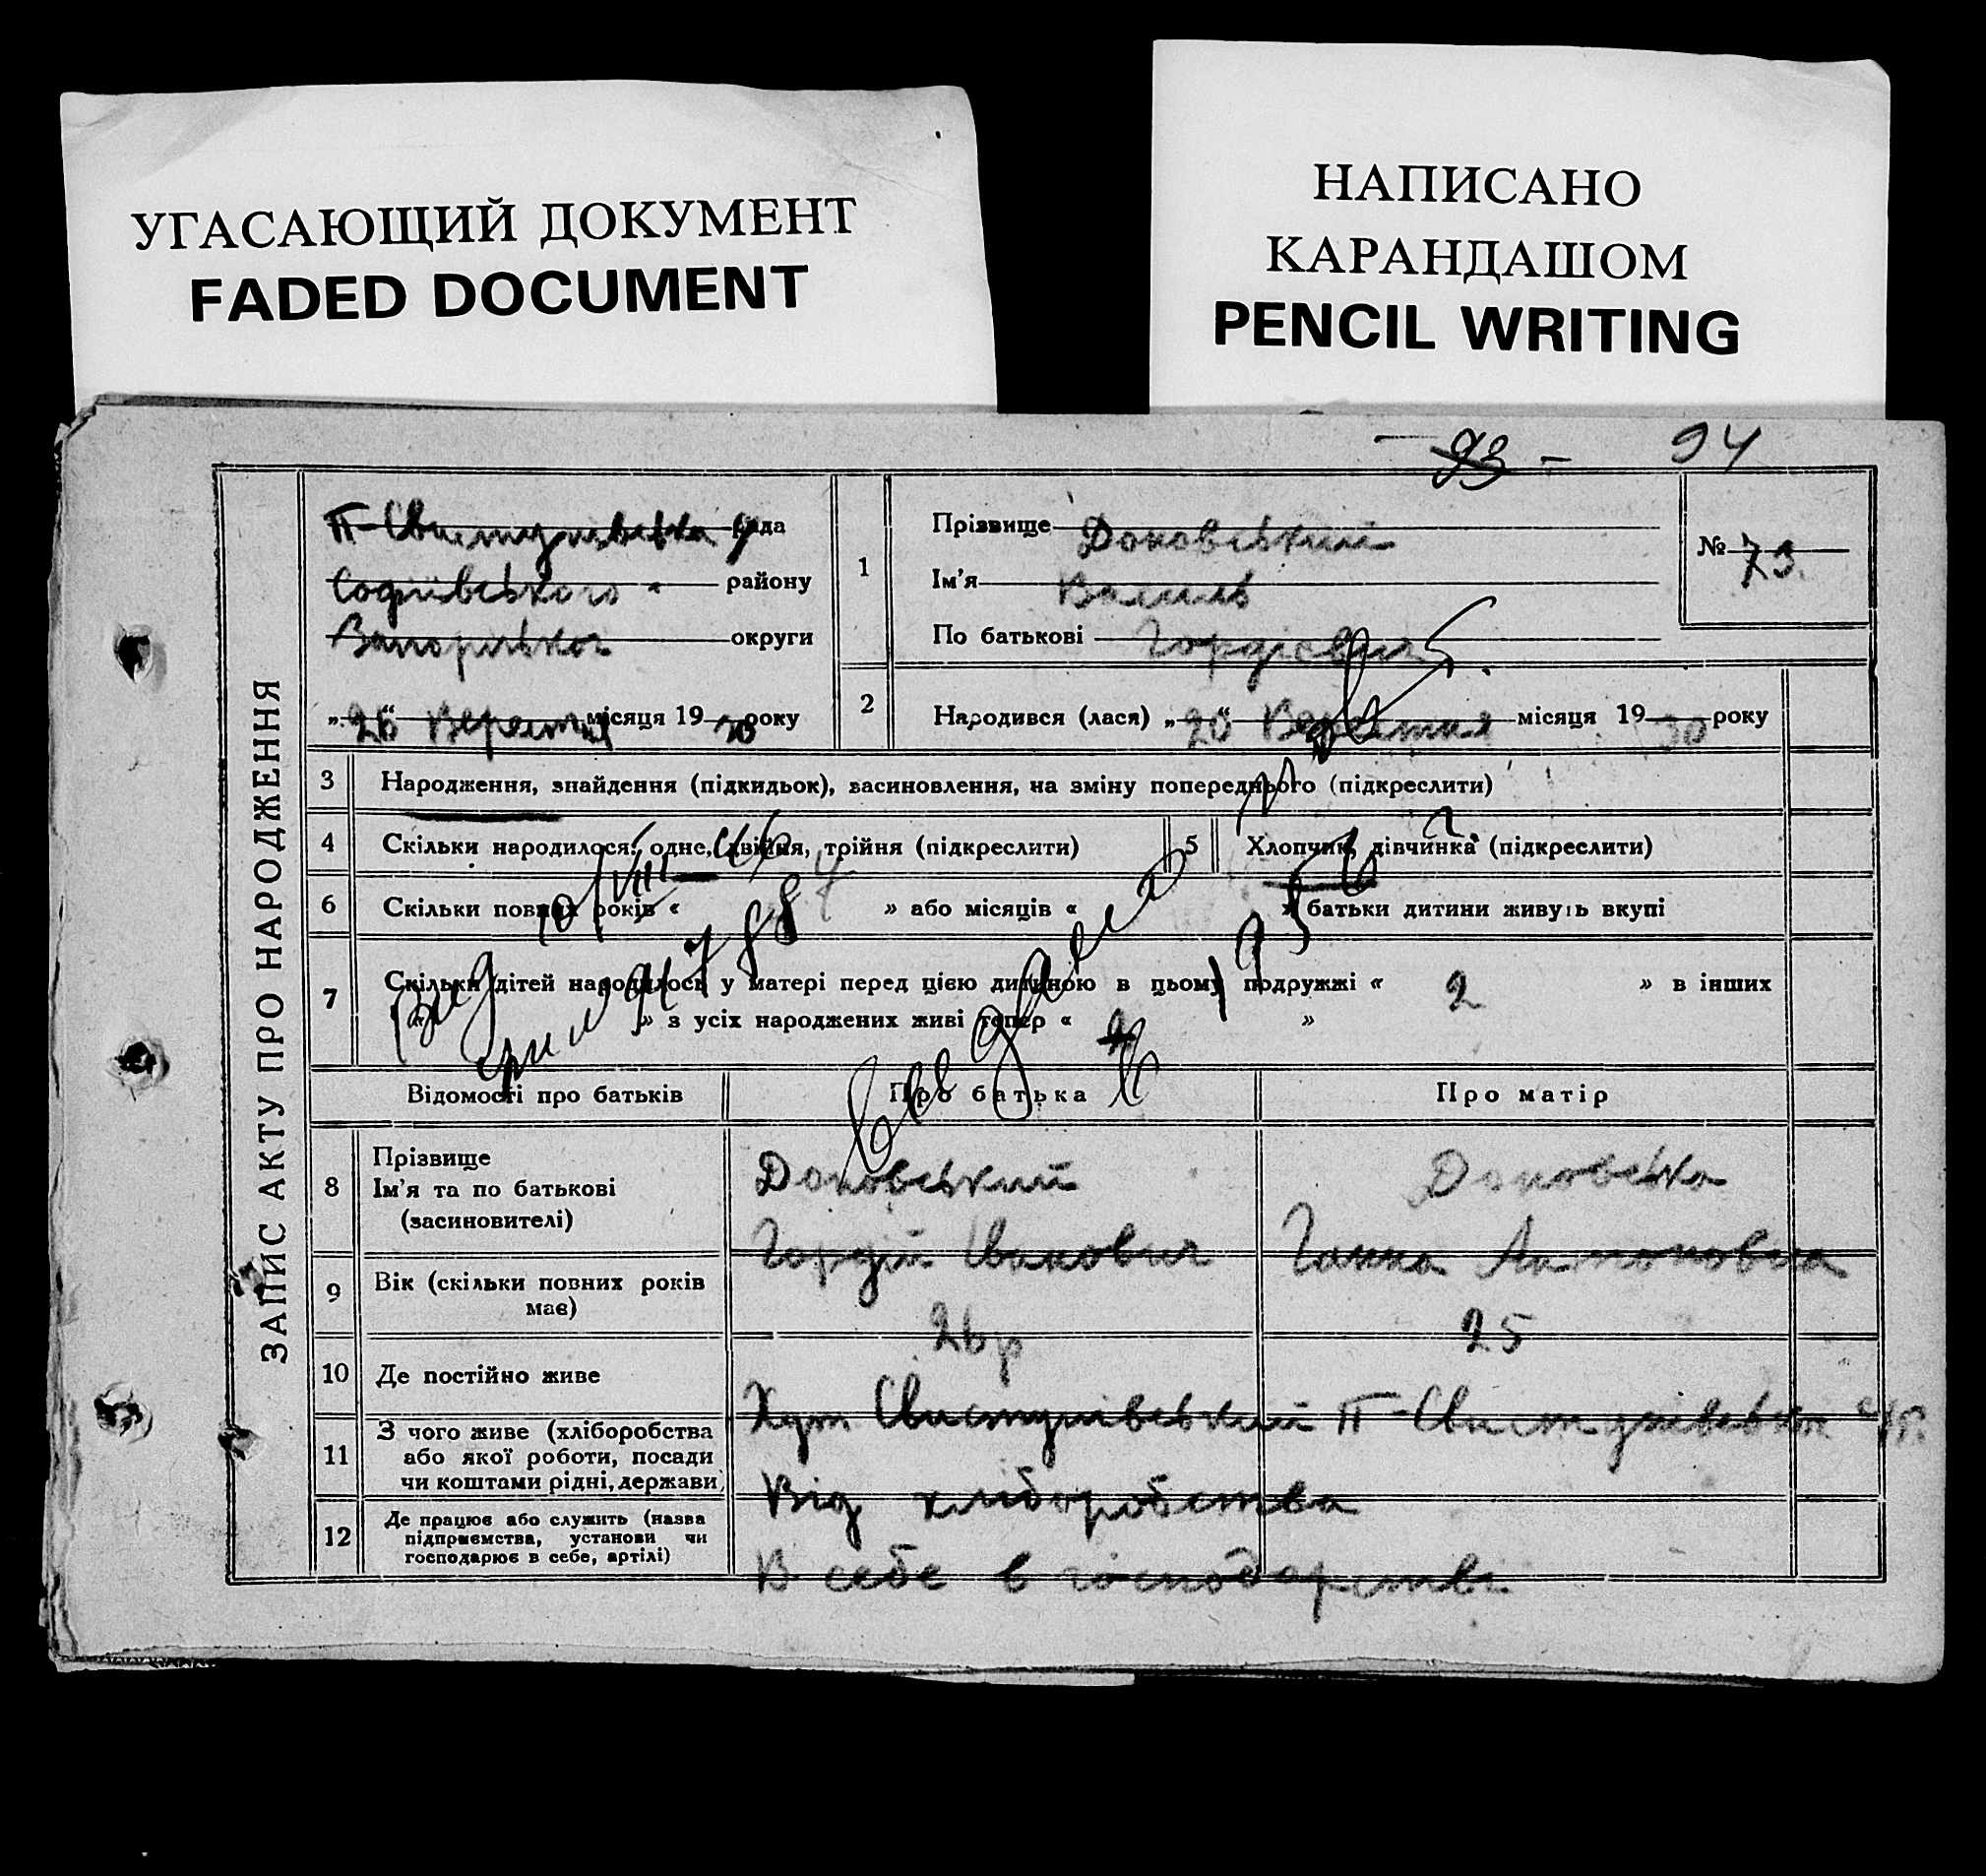 УГАСАЮЩИЙ ДОКУМЕНТ
FADED DOCUMENT
НАПИСАНО
КАРАНДАШОМ
PENCIL WRITING
93 - 94
ЗАПИС АКТУ ПРО НАРОДЖЕННЯ
П-Свистунівська рада
Софіївського району
Запорізької округи
„26“ Вересня місяця 1930 року
1
Прізвище Доновський
Ім'я Василь
По батькові Гордієвич
№ 73.
2
Народився (лася) „20“ Вересня місяця 1930 року
3 Народження, знайдення (підкидьок), засиновлення, на зміну попереднього (підкреслити)
4 Скільки народилося: одне, двійня, трійня (підкреслити) 5 Хлопчик, дівчинка (підкреслити)
6 Скільки повних років « » або місяців « » батьки дитини живуть вкупі
7 Скільки дітей народилось у матері перед цією дитиною в цьому подружжі « 2 » в інших
« » з усіх народжених живі тепер « 2 »
Відомості про батьків Про батька Про матір
8 Прізвище
Ім'я та по батькові
(засиновителі)
Доновський
Гордій Іванович
Доновська
Ганна
9 Вік (скільки повних років
має)
26 р
25
10 Де постійно живе
Хут Свистунівський П-Свистунівської с/р.
11 З чого живе (хліборобства
або якої роботи, посади
чи коштами рідні, держави)
Від хліборобства
12 Де працює або служить (назва
підприємства, установи чи
господарює в себе, артілі)
В себе в господарстві